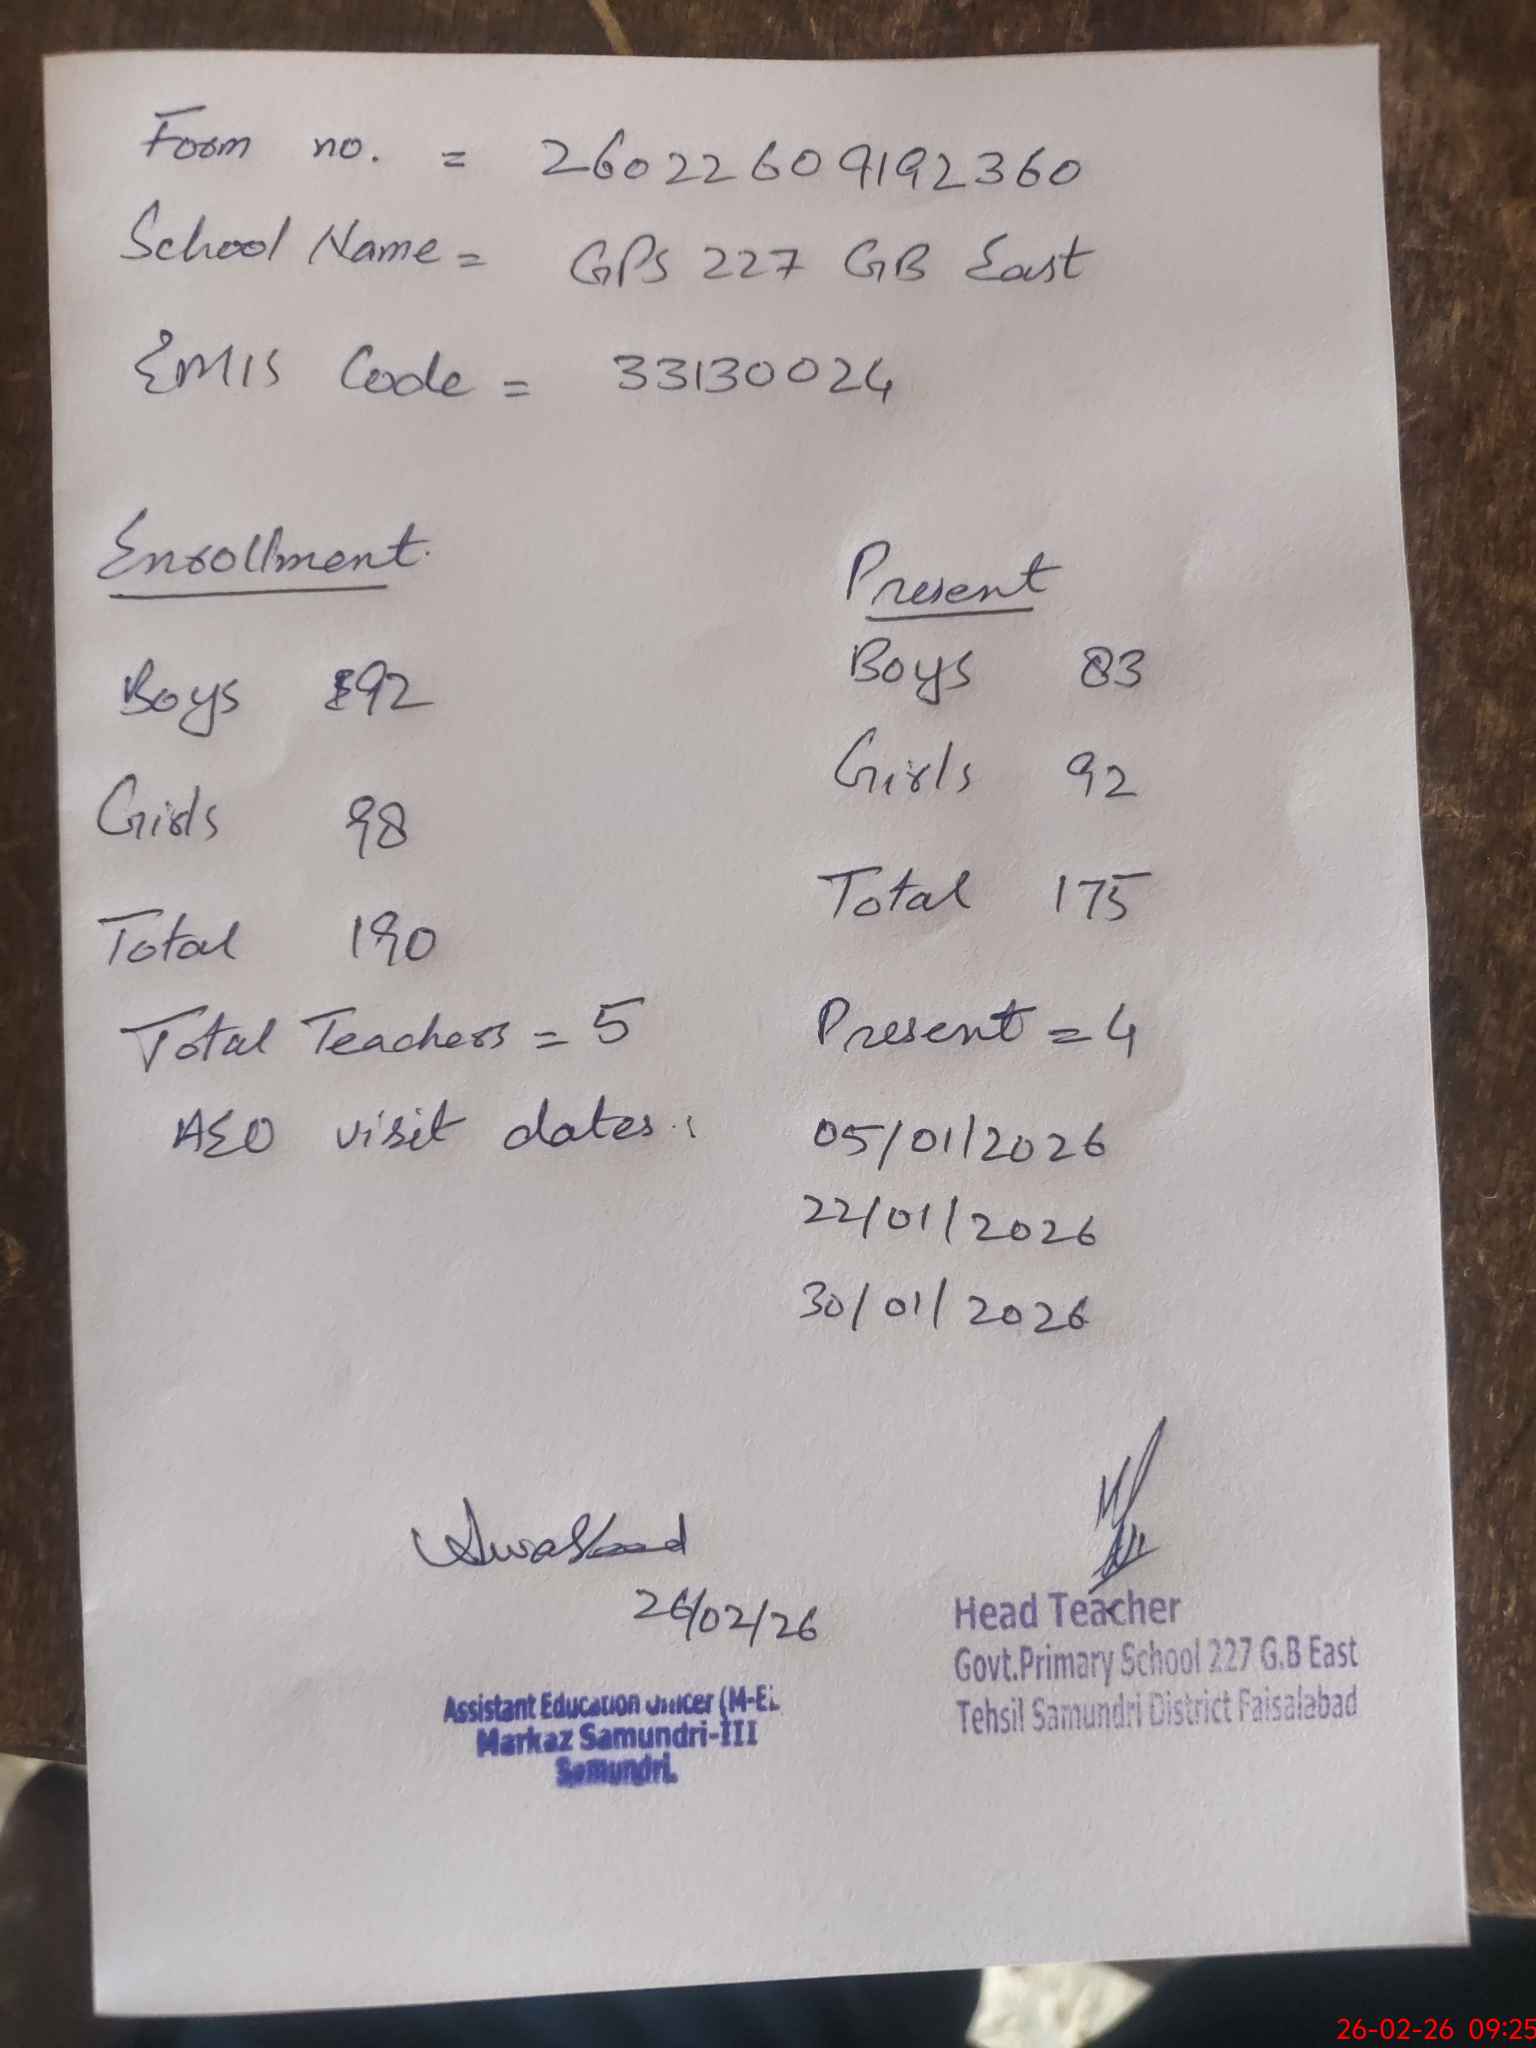 Form no. = 26022609192360
School Name = GPS 227 GB East
EMIS Code = 33130024
Enrollment. Present
Boys 92 Boys 83
Girls 98 Girls 92
Total 190 Total 175
Total Teachers = 5 Present = 4
AEO visit dates: 05/01/2026
22/01/2026
30/01/2026
26/02/26
Head Teacher
Govt.Primary School 227 G.B East
Tehsil Samundri District Faisalabad
Assistant Education Officer
Markaz Samundri-III
Samundri.
26-02-26 09:25